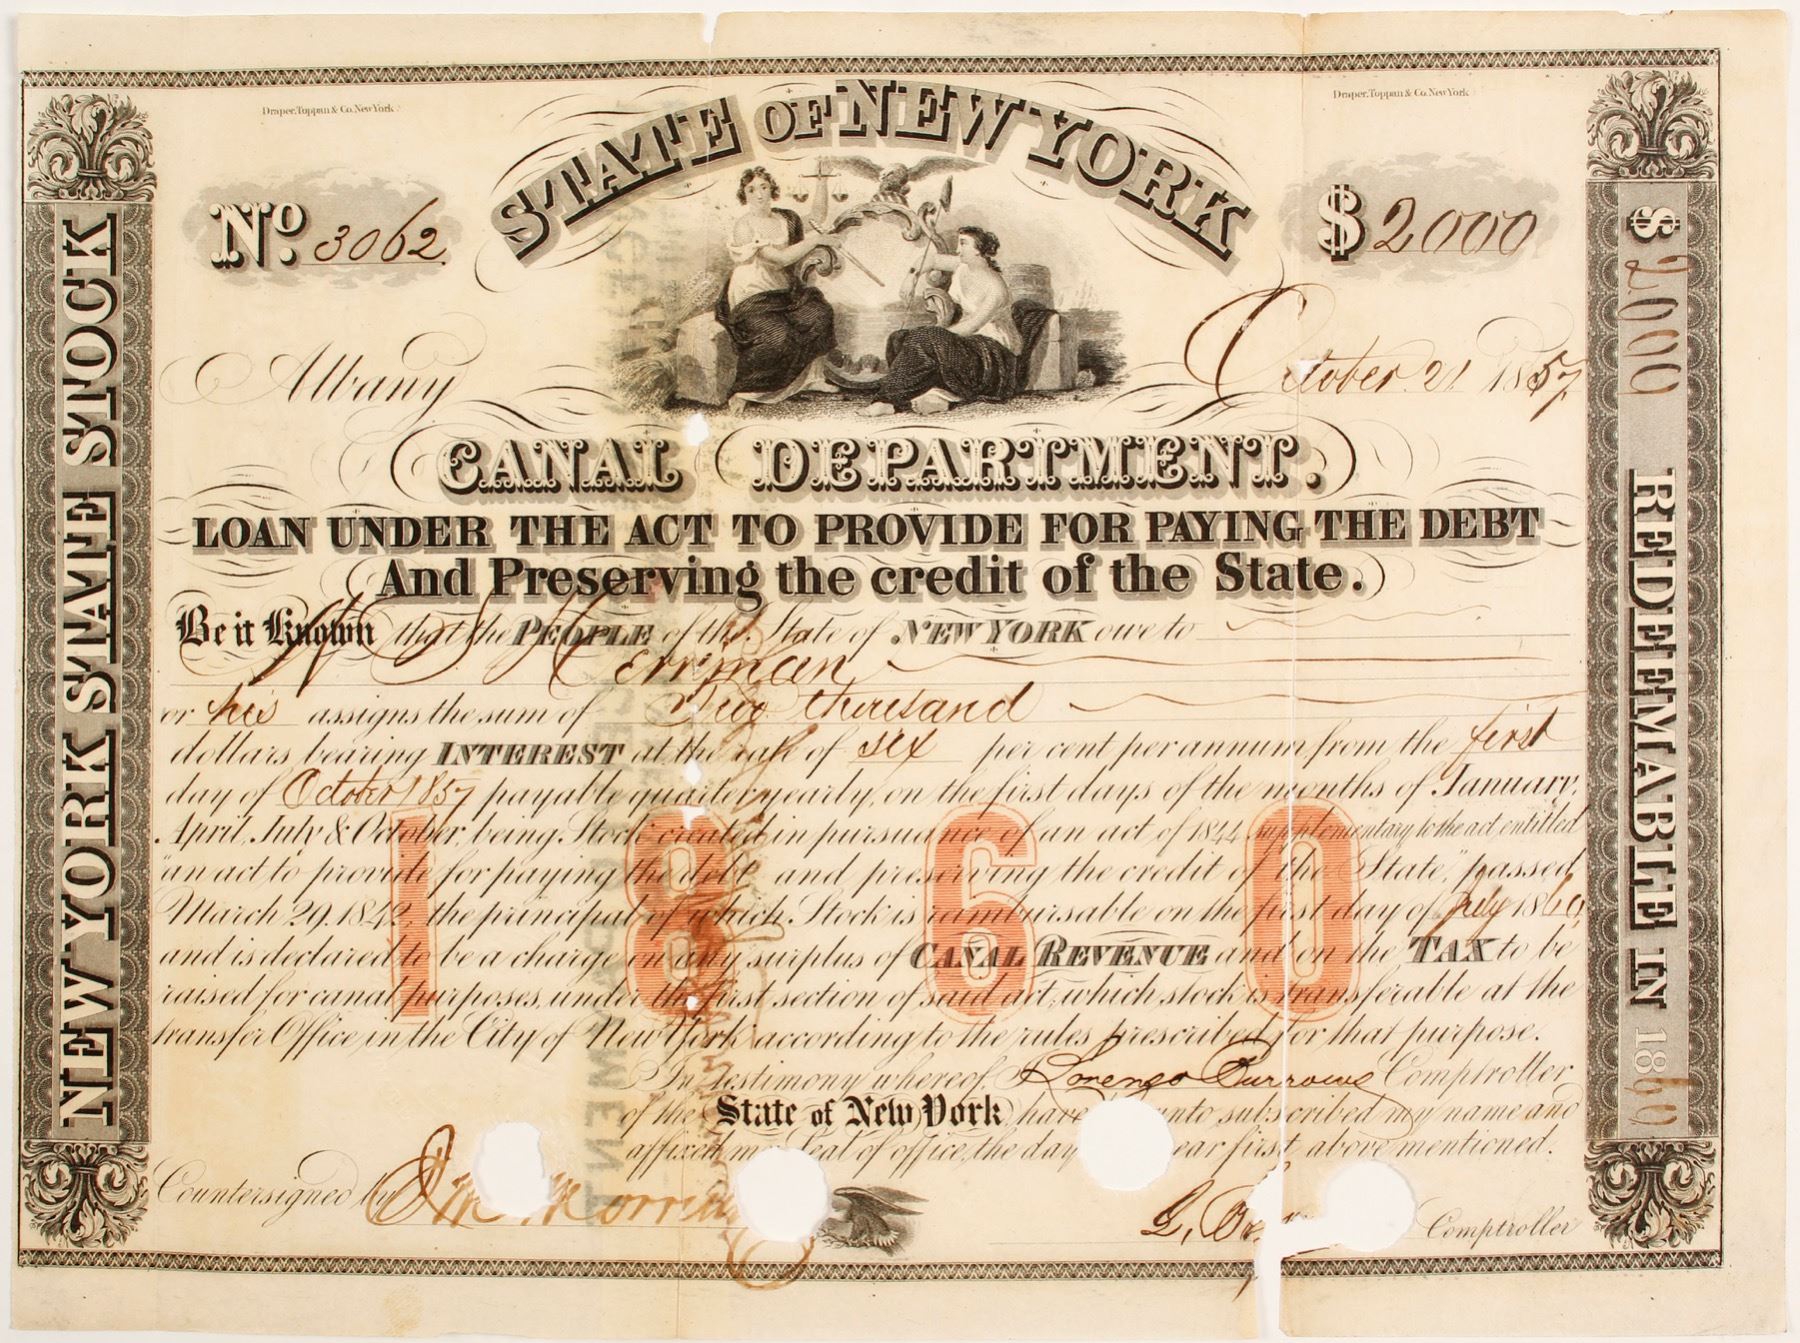 Draper, Toppan & Co. New York
Draper, Toppan & Co. New York
STATE OF NEW YORK
No. 3062
$2000
Albany October 21 1857,
CANAL DEPARTMENT.
LOAN UNDER THE ACT TO PROVIDE FOR PAYING THE DEBT
And Preserving the credit of the State.
Be it Known that the PEOPLE of the State of NEW YORK owe to
H Merriman
or his assigns the sum of Two thousand
dollars bearing INTEREST at the rate of six per cent per annum from the first
day of October 1857 payable quarter yearly, on the first days of the months of January,
April, July & October, being Stock created in pursuance of an act of 1844 supplementary to the act entitled
"an act to provide for paying the debt and preserving the credit of the State," passed
March 29. 1842, the principal of which Stock is reimbursable on the first day of July 1860
and is declared to be a charge on any surplus of CANAL REVENUE and on the TAX to be
raised for canal purposes, under the first section of said act, which stock is transferable at the
transfer Office in the City of New York according to the rules prescribed for that purpose.
1860
In testimony whereof, I Lorenzo Burrows Comptroller
of the State of New York have unto subscribed my name and
affixed my Seal of office, the day ear first above mentioned.
Countersigned by
L. Comptroller
NEW YORK STATE STOCK
$2000 REDEEMABLE IN 1860